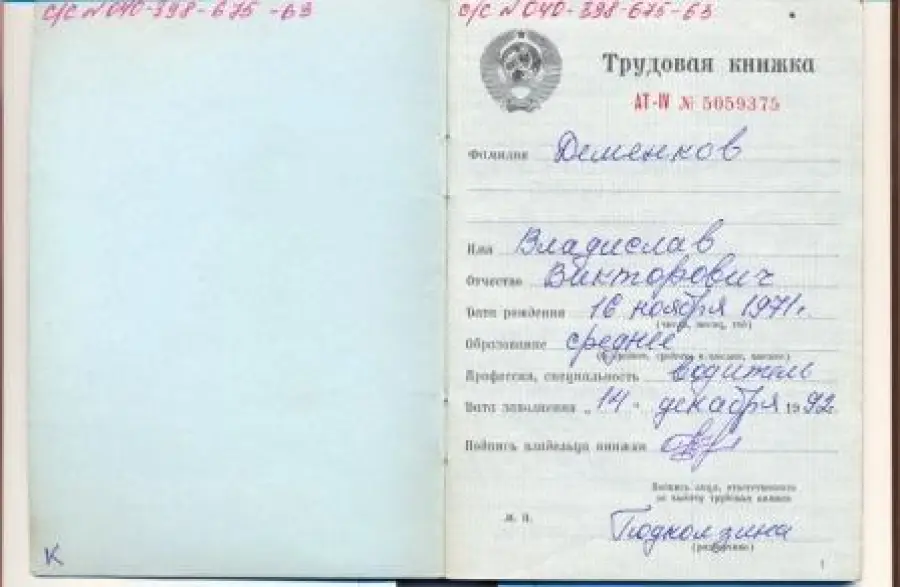 с/с N 040-398-675-63
с/с N 040-398-675-63
Трудовая книжка
АТ-IV № 5059375
Фамилия Деменков
Имя Владислав
Отчество Викторович
Дата рождения 16 ноября 1971г.
(число, месяц, год)
Образование среднее
Профессия, специальность водитель
Дата заполнения „14“ декабря 1992г.
Подпись владельца книжки
Подпись лица, ответственного
за выдачу трудовых книжек
М. П.
Подколзина
(разборчиво)
К
1